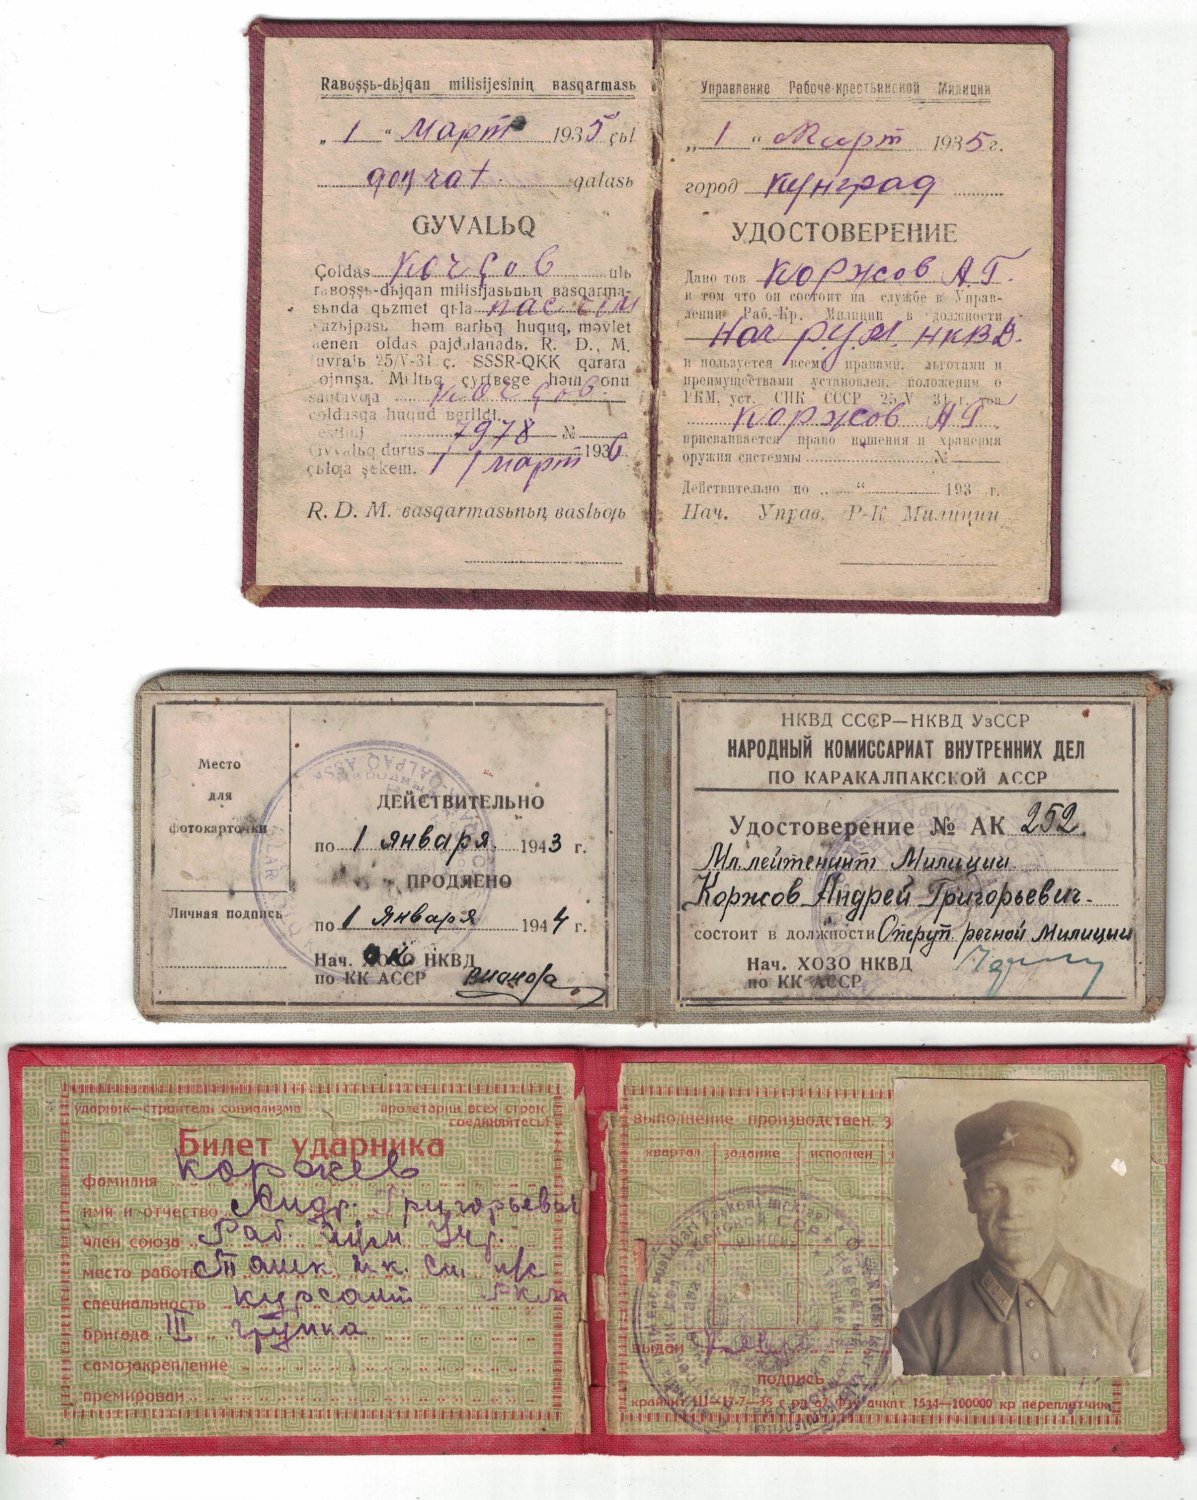 Rавoşşь-dьjqan milisijesiniꞑ вasqarmasь
„ 1 “ март 1935 çьl
qoꞑrat qalasь
GYVALЬQ
Çoldas Korçov ulь
raвoşşь-dьjqan milisijasьnьꞑ вasqarma-
sьnda qьzmet qьla
həm вarlьq huquq, məvlet
menen oldas pajdalanadь. R. D. M.
25/V-31 ç. SSSR-QKK qararа
çyrtвege həm onь
çoldasqa huqud вerildi.
7978 №
Gyvalьq durus 1936
çьlqa şekem. 1 март
R. D. M. вasqarmasьnьꞑ вaslьqь
Управление Рабоче-крестьянской Милиции
„ 1 “ Март 1935 г.
город Кунград
УДОСТОВЕРЕНИЕ
Дано тов Коржов А.Г.
в том что он состоит на службе в Управ-
лении Раб.-Кр. Милиции в должности
Нач Р.У.М. НКВД.
и пользуется всеми правами, льготами и
преимуществами установлен. положением о
РКМ, уст. СНК СССР 25/V 31 г. тов
Коржов А Г.
присваивается право ношения и хранения
оружия системы №
Действительно по „ “ 193 г.
Нач. Управ. Р-К Милиции
Место
для
фотокарточки
Личная подпись
ДЕЙСТВИТЕЛЬНО
по 1 января 1943 г.
ПРОДЛЕНО
по 1 Января 1944 г.
Нач. ХОЗО НКВД
по КК АССР
НКВД СССР—НКВД УзССР
НАРОДНЫЙ КОМИССАРИАТ ВНУТРЕННИХ ДЕЛ
ПО КАРАКАЛПАКСКОЙ АССР
Удостоверение № АК 252
Мл. лейтенант Милиции
Коржов Андрей Григорьевич.
состоит в должности Оперуп. речной Милиции
Нач. ХОЗО НКВД
по КК АССР
ударник—строитель социализма
пролетарии всех стран,
соединяйтесь!
Билет ударника
фамилия Коржев
имя и отчество Андр. Григорьевич
член союза Раб.
место работы Ташк.
специальность курсант РКМ
бригада III группа
самозакрепление
премирован
выполнение производствен. з
квартал задание исполнен
выдан
подпись
1534—100000 кр переплетчик